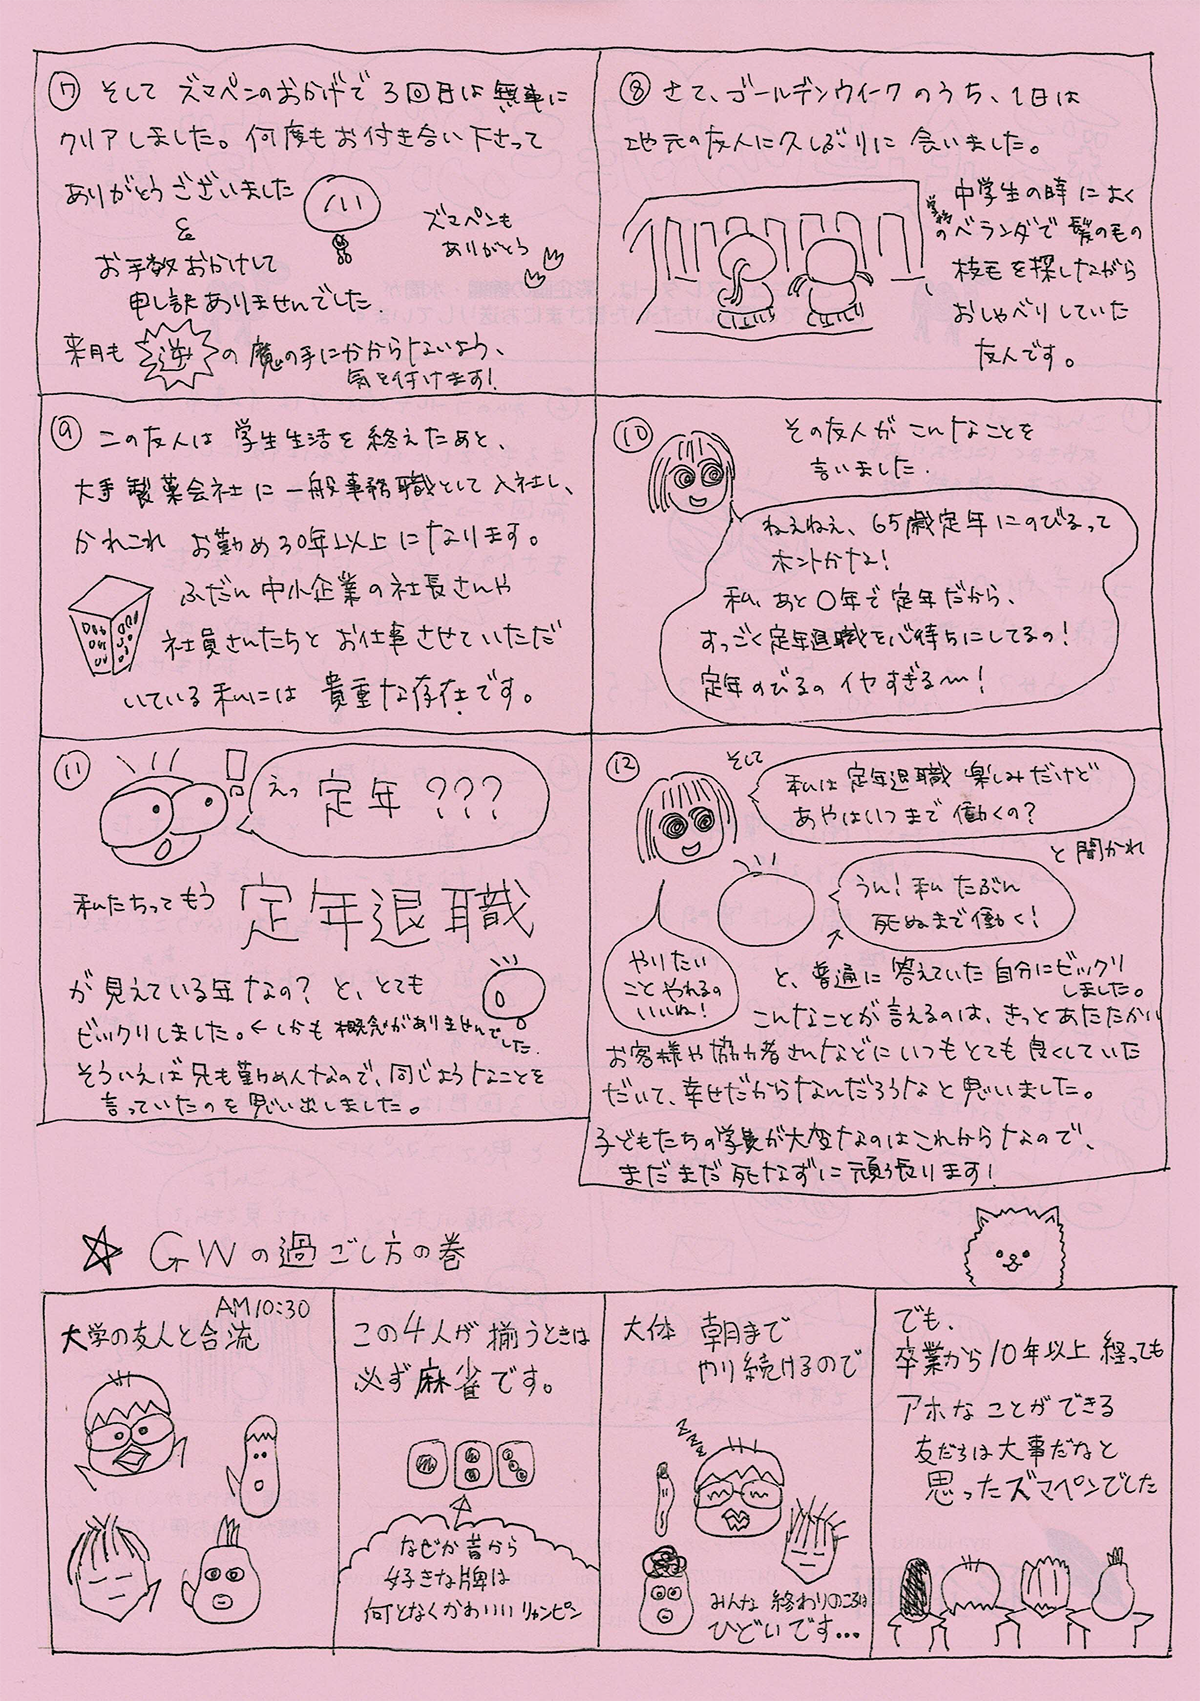 ⑦ そして ズマペンのおかげで 3回目は 無事に
クリアしました。何度も お付き合い 下さって
ありがとうございました
&
お手数おかけして
申し訳ありませんでした
ズマペンも
ありがとう
来月も 逆 の 魔の手にかからないよう、
気を付けます!
⑧ さて、ゴールデンウィーク のうち、1日は
地元の友人に久しぶりに 会いました。
中学生の時 によく
学校のベランダで 髪の毛の
枝毛を探しながら
おしゃべりしていた
友人です。
⑨ この友人は 学生生活を 終えたあと、
大手 製薬会社に 一般事務職として 入社し、
かれこれ お勤め30年以上になります。
ふだん 中小企業の社長さんや
社員さんたちと お仕事させていただ
いている 私には 貴重な存在です。
⑩ その友人が こんなことを
言いました.
ねえねえ、65歳定年にのびるって
ホントかな!
私、あと〇年で 定年だから、
すっごく定年退職を心待ちにしてるの!
定年のびるの イヤすぎる〜!
⑪ えっ 定年 ???
私たちってもう 定年退職
が見えている年なの? と、とても
ビックリしました。← しかも 概念がありませんで
した.
そういえば 兄も勤め人なので、同じようなことを
言っていたのを 思い出しました。
⑫ そして
私は 定年退職 楽しみだけど
あやはいつまで 働くの?
と 聞かれ
うん! 私 たぶん
死ぬまで働く!
やりたい
こと やれるの
いいね!
と、普通に 答えていた 自分にビックリ
しました。
こんなことが 言えるのは、きっと あたたかい
お客様や 協力者さんなどに いつも とても 良くしていた
だいて、幸せだからなんだろうな と 思いました。
子どもたちの学費が大変なのはこれからなので、
まだまだ 死なずに 頑張ります!
☆ GWの過ごし方の巻
AM10:30
大学の友人と合流
この4人が 揃うときは
必ず 麻雀です。
なぜか 昔から
好きな牌は
何となくかわいい リャンピン
大体 朝まで
やり続けるので
zzzz
みんな 終わりのころは
ひどいです…
でも、
卒業から10年以上 経っても
アホな ことができる
友だちは 大事だなと
思ったズマペンでした